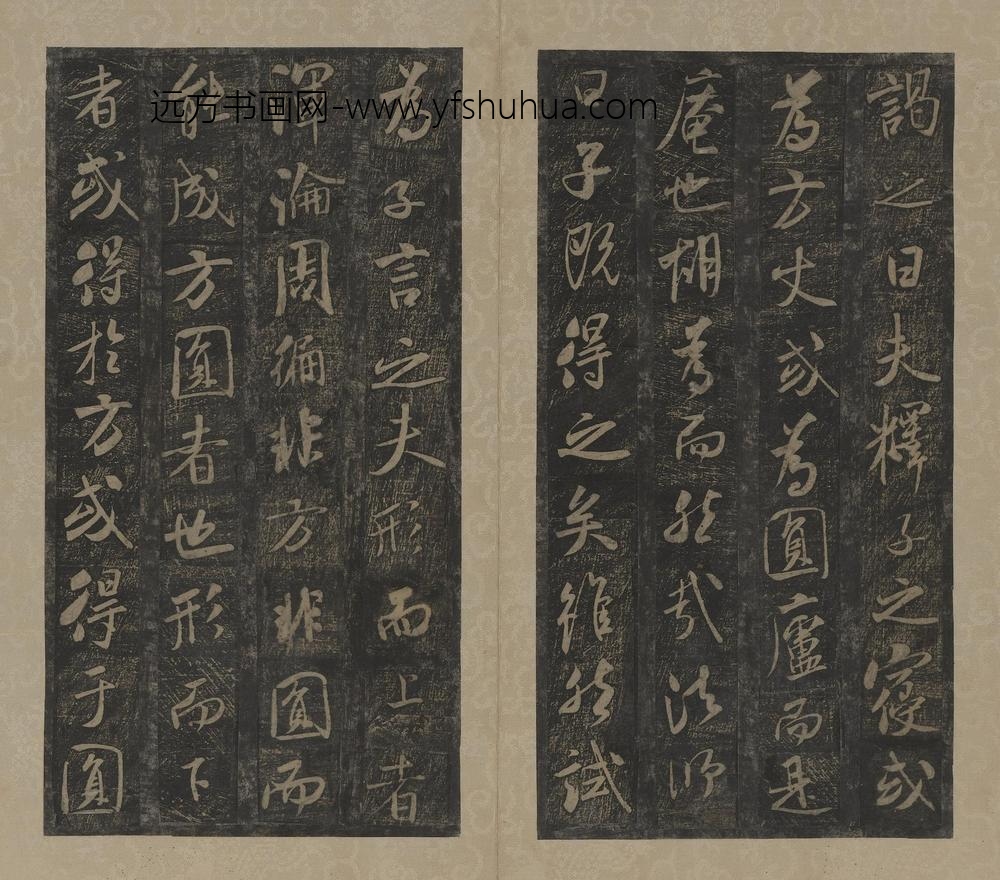 謁之曰夫釋子之寢或
為方丈或為圓廬而是
庵也胡為而然哉法師
曰子既得之矣雖然試
為子言之夫形而上者
渾淪周徧非方非圓而
能成方圓者也形而下
者或得於方或得于圓
远方书画网-www.yfshuhua.com